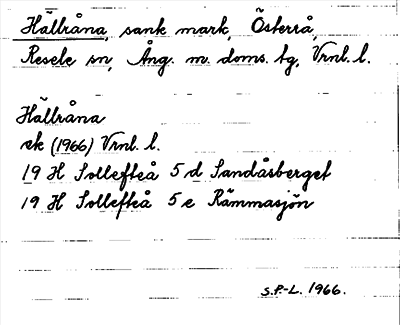 Hällråna, sank mark, Österrå,
Resele sn, Ång. m. doms. tg, Vrnl. l.
Hällråna
ek (1966) Vrnl. l.
19 H Sollefteå 5 d Sandåsberget
19 H Sollefteå 5 e Rämmasjön
S.P.-L. 1966.